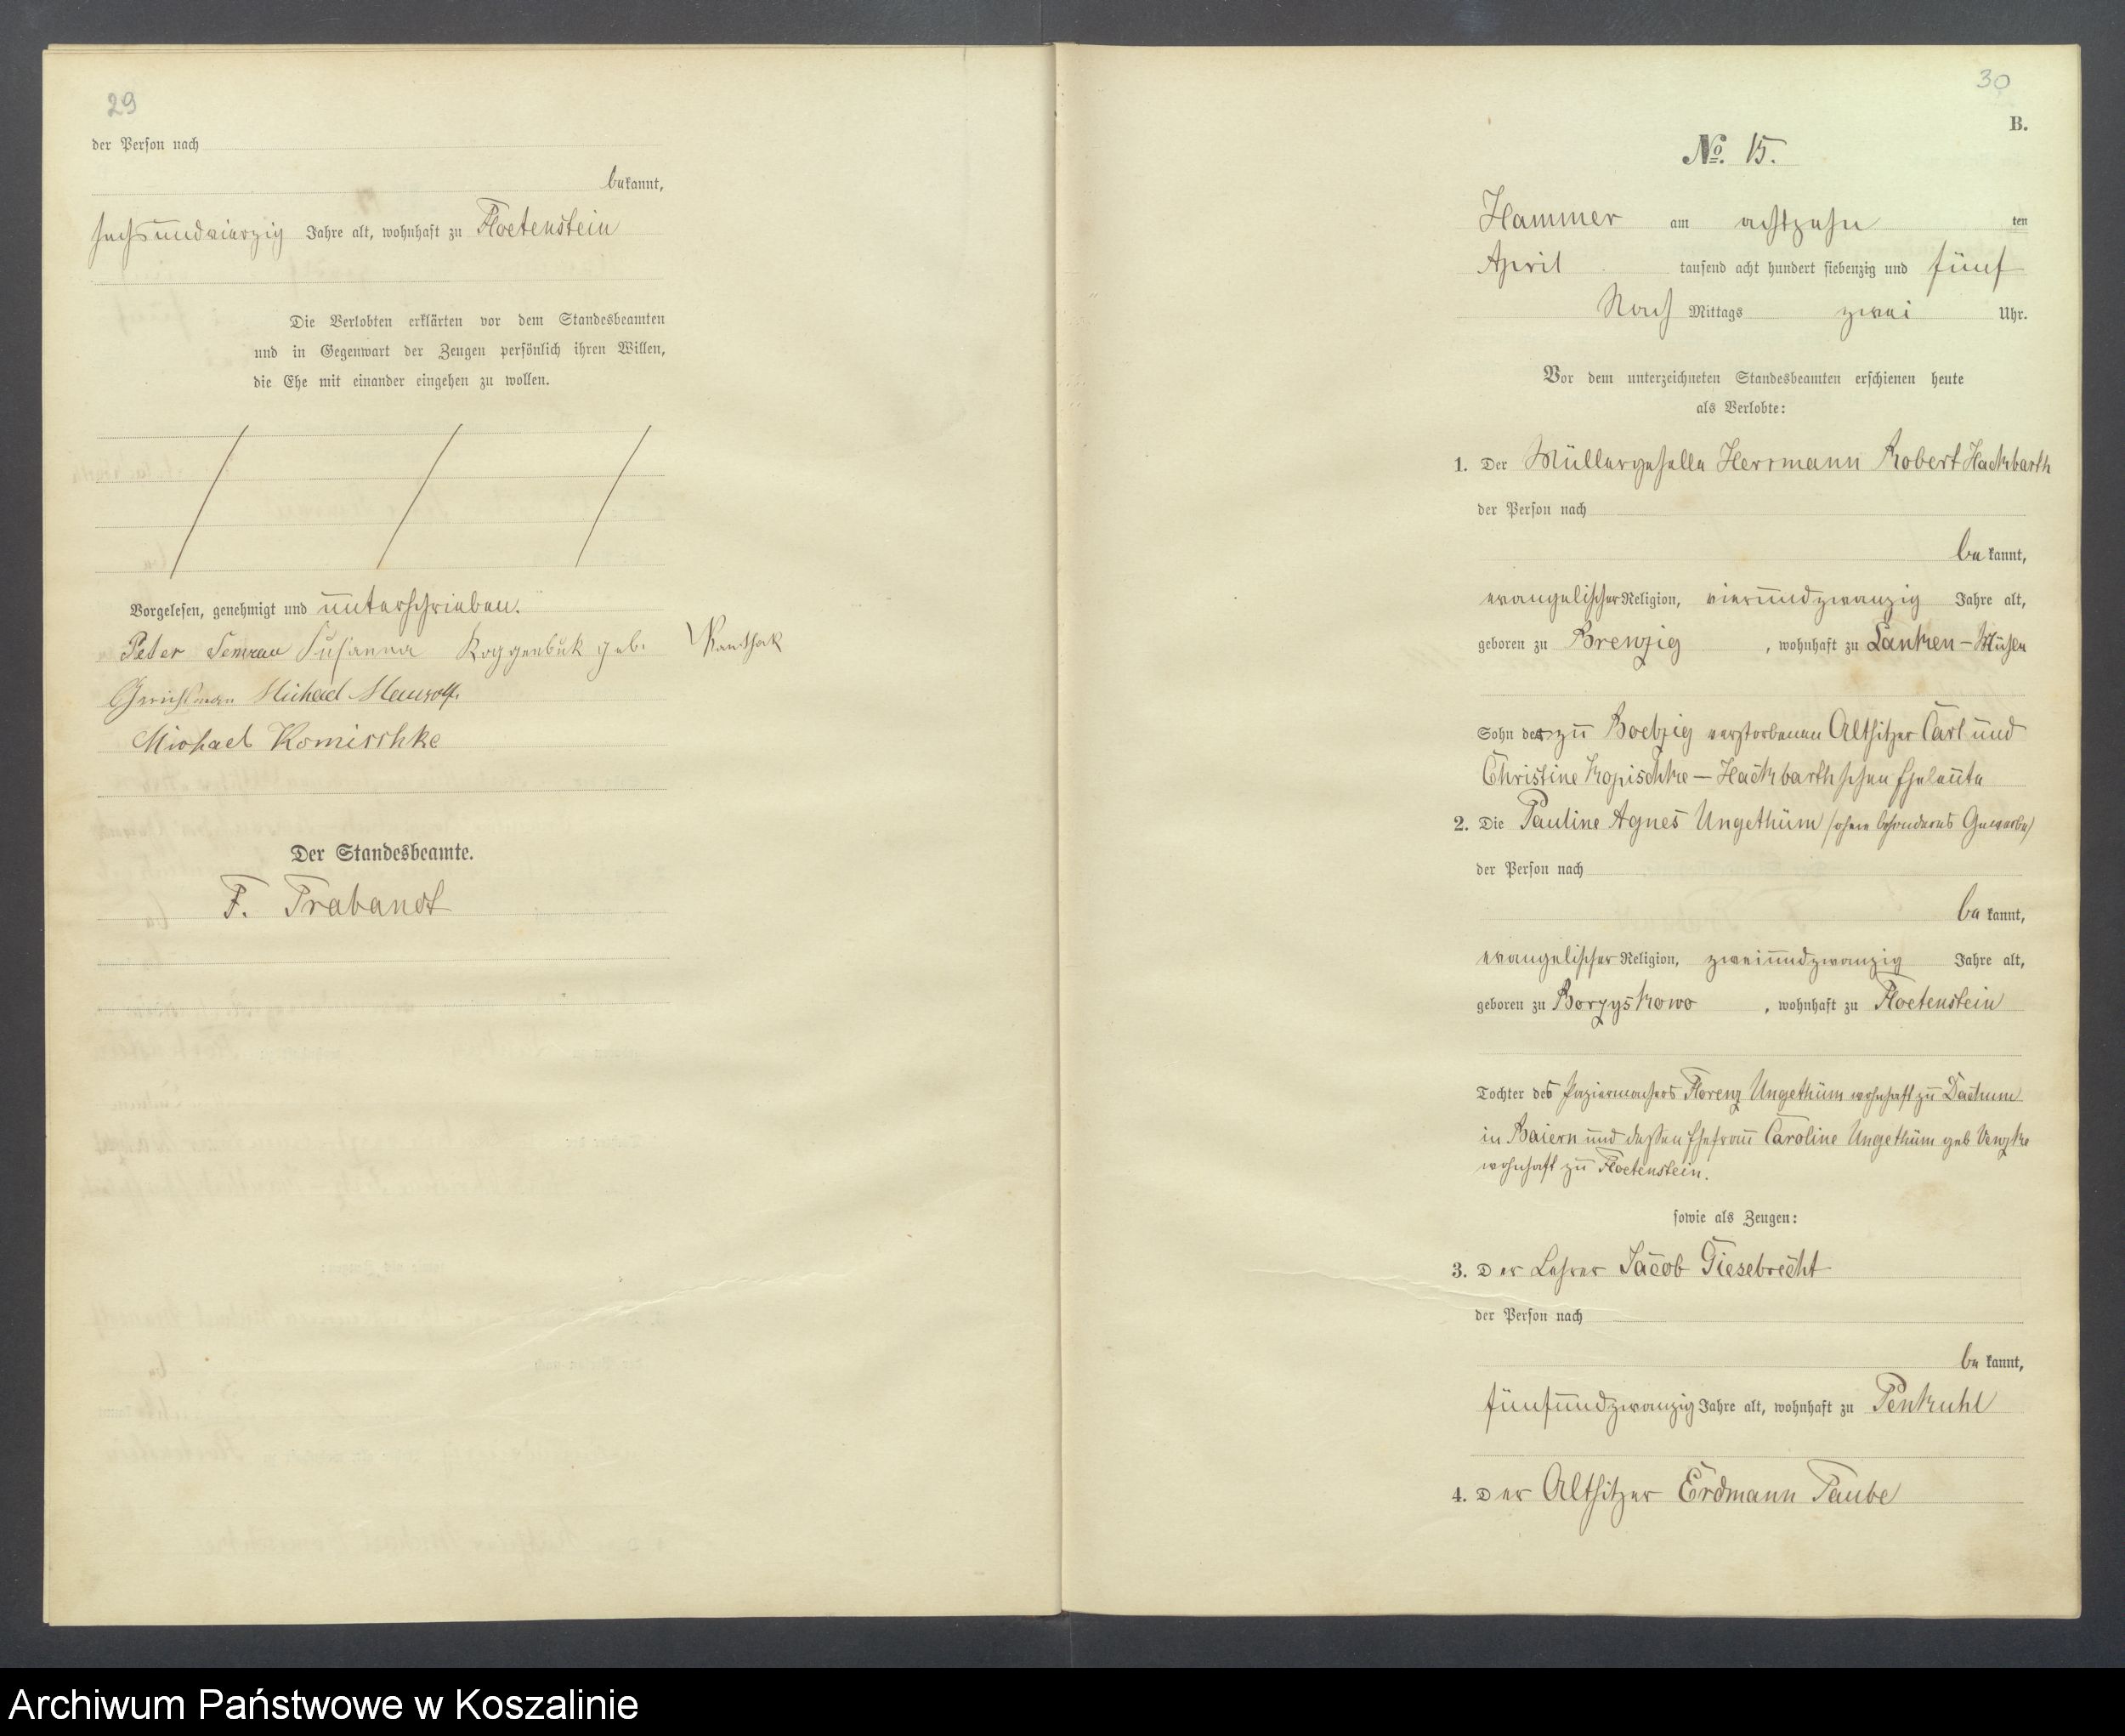 29
der Person nach
bekannt,
sechsundvierzig Jahre alt, wohnhaft zu Floetenstein
Die Verlobten erklärten vor dem Standesbeamten
und in Gegenwart der Zeugen persönlich ihren Willen,
die Ehe mit einander eingehen zu wollen.
Vorgelesen, genehmigt und unterschrieben.
Peter Semrau Susanna Roggenbuk geb.
Michael
Michael Komischke
Der Standesbeamte.
F. Trabandt
30
B.
No. 15.
Hammer am achtzehn ten
April tausend acht hundert siebenzig und fünf
Nach Mittags zwei Uhr.
Vor dem unterzeichneten Standesbeamten erschienen heute
als Verlobte:
1. Der Müllergeselle Herrmann Robert Hackbarth
der Person nach
be kannt,
evangelischer Religion, vierundzwanzig Jahre alt,
geboren zu Brenzig, wohnhaft zu Lanken-Mühle
Sohn der zu Boetzig verstorbenen Altsitzer Carl und
Christine Kopischke - Hackbarthschen Eheleute
2. Die Pauline Agnes Ungethüm (ohne besonderes Gewerbe)
der Person nach
be kannt,
evangelischer Religion, zweiundzwanzig Jahre alt,
geboren zu Borzyskowo, wohnhaft zu Floetenstein
Tochter des Papiermachers Florenz Ungethüm wohnhaft zu Dachum
in Baiern und dessen Ehefrau Caroline Ungethüm geb Venzke
wohnhaft zu Floetenstein.
sowie als Zeugen:
3. Der Lehrer Jacob Giesebrecht
der Person nach
be kannt,
fünfundzwanzig Jahre alt, wohnhaft zu Penkuhl
4. Der Altsitzer Erdmann Taube
Archiwum Państwowe w Koszalinie